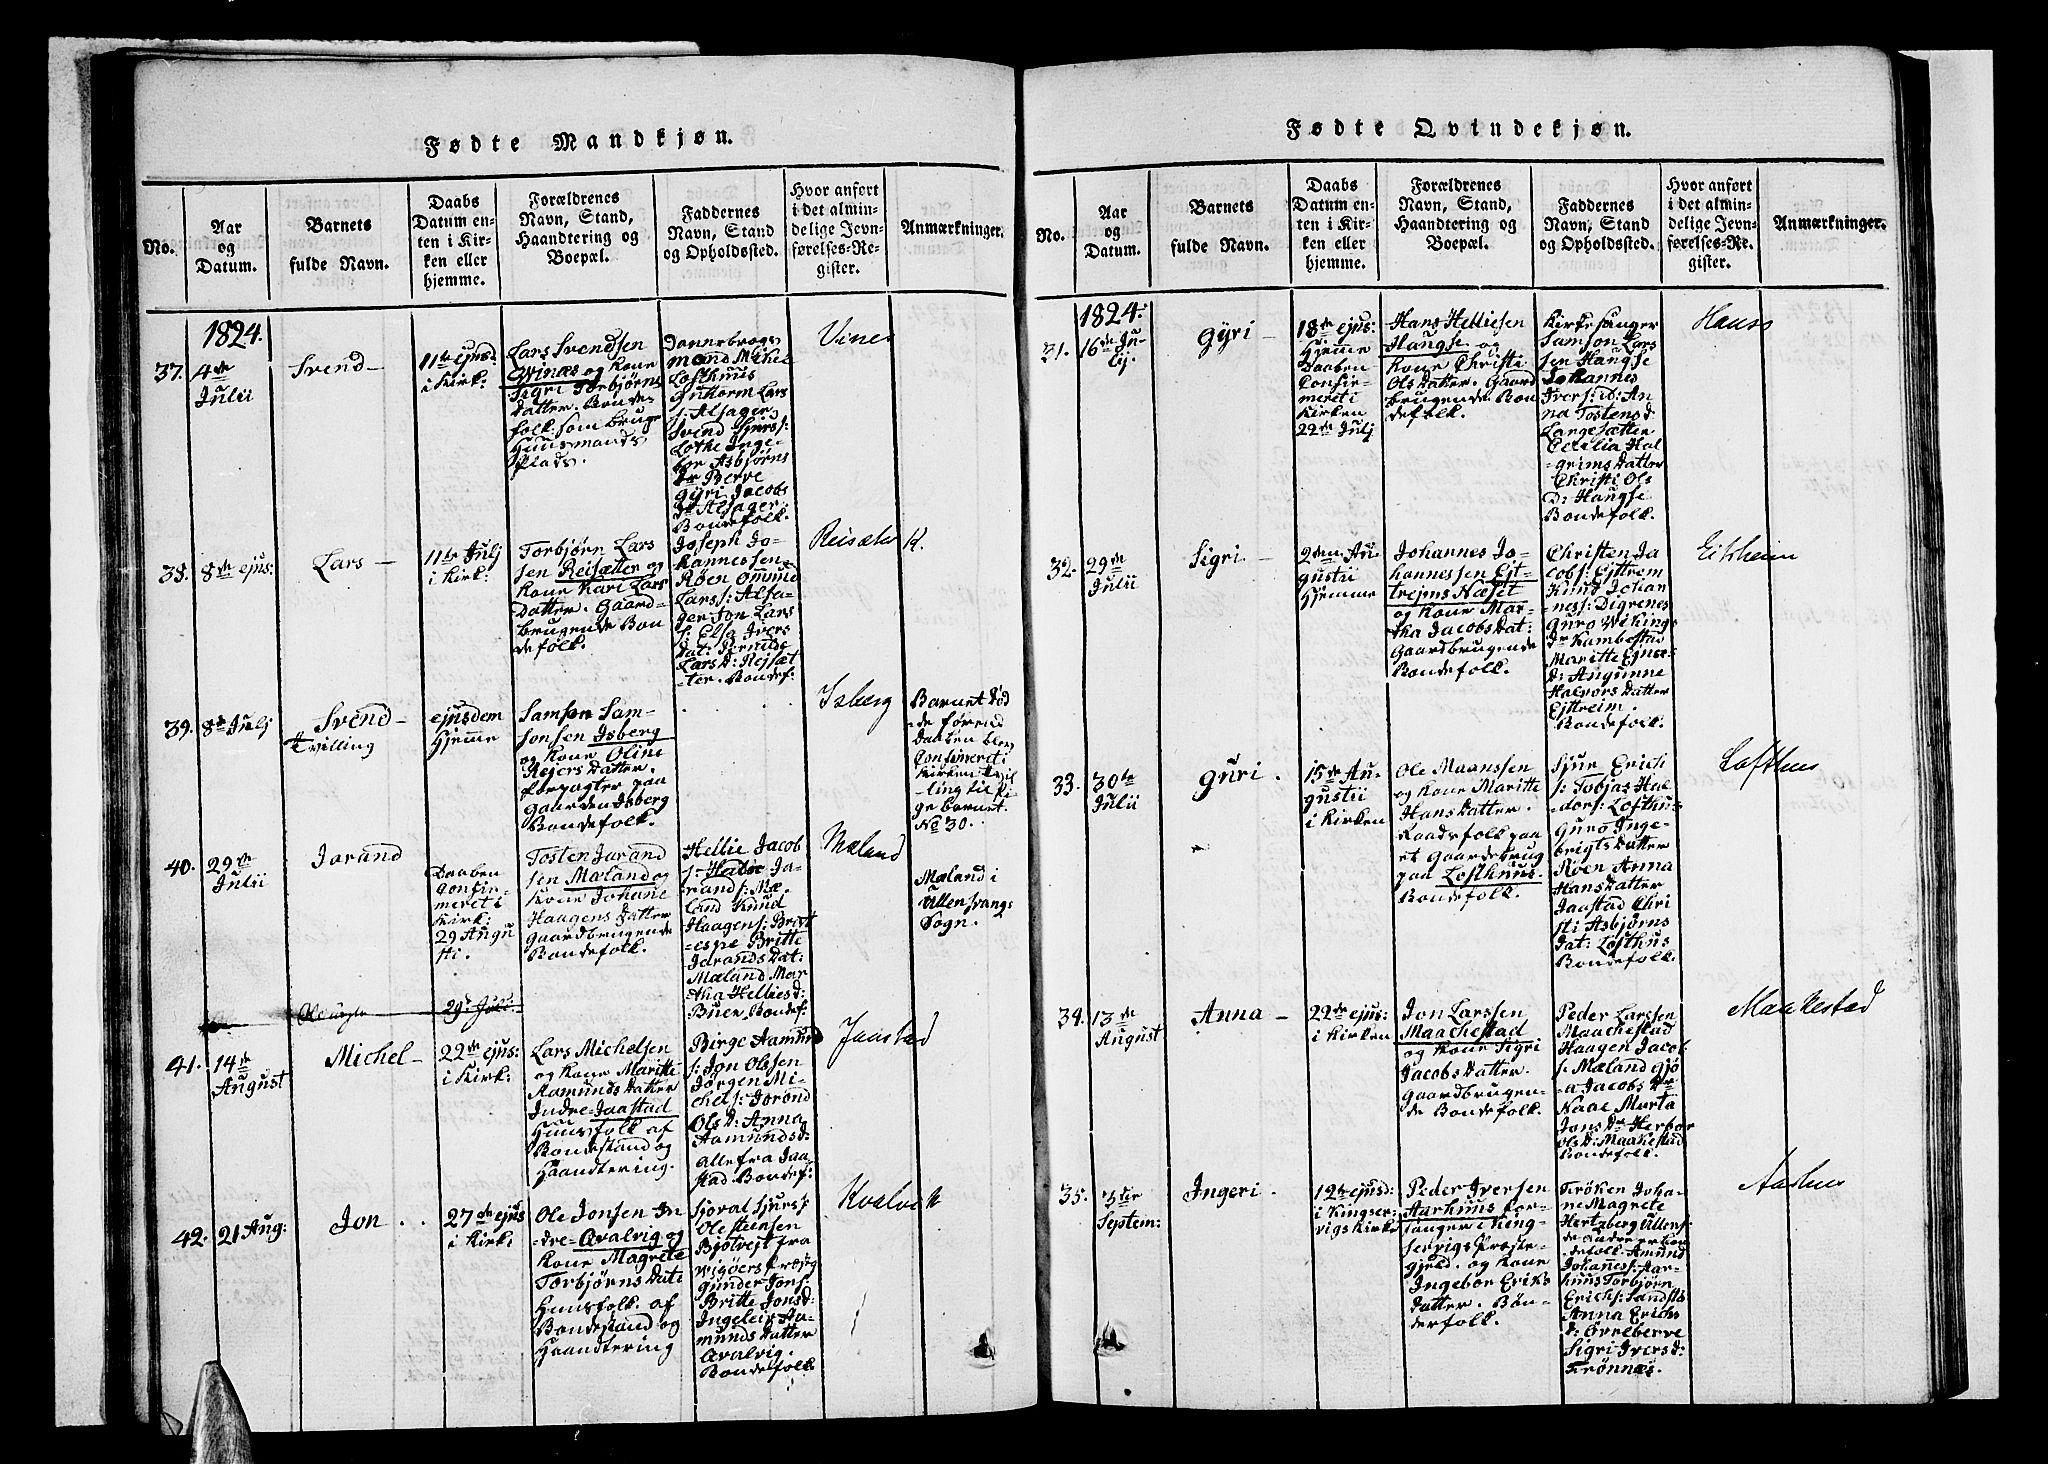 Fødte Mandkjøn.
No.
Aar
og
Datum.
Barnets
fulde Navn.
Daabs
Datum en-
ten i Kir-
ken eller
hjemme.
Forældrenes
Navn, Stand,
Haandtering og
Boepæl.
Faddernes
Navn, Stand
og Opholdssted.
Hvor anført
i det almin-
delige Jevn-
førelses-Re-
gister.
Anmærkninger.
1824.
37.
4de
Julii
Svend
11te ejusd:
i Kirk:
Lars Svendsen
Winæs og Kone
Sigri Torbjørns
Datter. Bonde-
folk som bruge
Huusmands
Plads.
Dannebrogs
mand Mikel
Lofthuus
Guttorm Lars
s: Alsager
Svend Sjurs:
Lothe Inge-
bor Asbjørns
Dr Berve
Gÿri Jacobs
Dr Alsager:
Bondefolk.
Vines
38.
8de ejus:
Lars
11te Julj
i Kirk:
Torbjørn Lars
sen Reisætter og
Kone Kari Lars
Datter. Gaard-
brugende Bon
defolk.
Joseph Jo-
hannessen
Røen Ommund
Larss: Alsa-
ger Jon Lars
s: Elsa Ivers
Dat: Pernille
Lars D: Rejsæt
-ter. Bondef:
Reisæter
K.
39.
8de Julj
Svend
Tvilling
ejusdem
Hjemme
Samson Sam-
sonsen Isberg
og Kone Oline
Rejers Datter.
Forpagter paa
Gaarden Isberg
Bondefolk.
Isberg
Barnet død
-de førend
Daaben blev
Confirmeret i
Kirken Tvil
-ling til Pi
ge barnet
No 30.
40.
29de
Julii
Jarand
Daaben
Confir-
meret i
Kirk:
29 Augu
sti.
Tosten Jarand
sen Mæland og
Kone Johane
Haagens Datter
Gaardbrugende
Bondefolk.
Hellie Jacob
s: Ja-
rands: Mæ-
land Knud
Haagens: Brist
-espe Britte
Jarands Dat:
Mæland Mar
tha Hellies d:
Buer, Bondef:
Mæland
Mæland i
Ullensvangs
Sogn.
29de Juli
41.
14de
August
Michel
22de ejus:
i Kirk:
Lars Michelsen
og Kone Maritte
Aamunds Datter
Indre-Jaastad
Huusfolk af
Bondestand og
Haandtering.
Birge Aamund
s: Jon Olssen
Jørgen Mi-
chels: Jorond
Ols D: Anna
Aamunds d:
alle fra Jaa-
stad. Bondef:
Jaastad
42.
21 Aug:
Jon
27de ejus
i Kirk:
Ole Jonsen In
dre-Qvalvig og
Kone Magrete
Torbjørns Datt
Huusfolk af
Bondestand og
Haandtering
Sjoval Sjurs:
Ole Steensen
Bjotvejt fra
Wigøers Præstg
Gunder Jons:
Britte Jons d:
Ingeleiv Aa-
munds Datter
Qvalvig.
Bondefolk
Kvalvik
Fødte Qvindekjøn.
No.
Aar
og
Datum.
Barnets
fulde Navn.
Daabs
Datum en-
ten i Kir-
ken eller
hjemme.
Forældrenes
Navn, Stand,
Haandtering og
Boepæl.
Faddernes
Navn, Stand
og Opholdssted.
Hvor anført
i det almin-
delige Jevn-
førelses-Re-
gister.
Anmærkninger.
1824.
31.
16de Ju-
lij
Gÿri
18de ejus:
Hjemme
Daaben
Confir-
meret i
Kirken
22de Julj
Hans Helliesen
Haugse og
Kone Christi
Ols Datter. Gaard
brugende Bon
defolk.
Kirkesanger
Samson Lars
sen Haugse
Johannes
Ivers: id: An
na Tostens d
Langesætter
Cecilia Hal
-grims Datter
Christi Ols
D: Haugse
Bondefolk.
Hauso
32.
29de
Julii
Sigri
2den Au-
gustii
Hjemme
Johannes Jo-
hannessen Ejt-
trejms Næset
og Kone Mar-
tha Jacobs Dat:
Gaardbrugende
Bondefolk.
Christen Ja
cobs: Ejttrem
Knud Johan
-nes: Digrenes
Guro Wikings
Dr Kambestad
Maritte Ejnar-
D: Angunne
Halvors Datter
Ejttreim.
Bondefolk.
Eitheim
33.
30te
Julii
Guri
15de Au-
gustii
i Kirken
Ole Maanssen
og Kone Maritte
Hans Datter.
Raadsfolk paa
et Gaardebrug
paa Lofthuus
Bondefolk.
Sjur Erich
s: Tobjas Hal
dors: Lofthu-
Guro Inge-
brigts Datter
Røen Anna
Hans Datter
Jaastad Chri
sti Asbjørns
Dat: Lofthus
Bondefolk.
Lofthus
34.
13de
August
Anna
22de ejus:
i Kirken
Jon Larssen
Maachestad
og Kone Sigri
Jacobs Datter.
Gaardbrugen-
de Bondefolk.
Peder Larssen
Maachestad
Haagen Jacob
s: Mæland Gjø
-a Jacobs Dr
Naae Marta
Jons Dr Herbor
Ols D: Maakestad
Bondefolk.
Maakestad
35.
3die
Septem:
Ingeri
12te ejusd:
i Kingser-
vigs Kirke
Peder Iversen
Aarhuus For-
sanger i King-
servigs Præste-
gjeld. og Kone
Ingebor Eriks
Datter. Bøn-
derfolk.
Frøken Joha-
ne Magrete
Hertzberg Ullens:
de andre er Bon
defolk. Amund
Johanes: Aar-
huus Torbjørn
Erichs: Sandstø
Anna Erichs
D: Ovreberve
Sigri Ivers d:
Trønnæs.
Aarhus